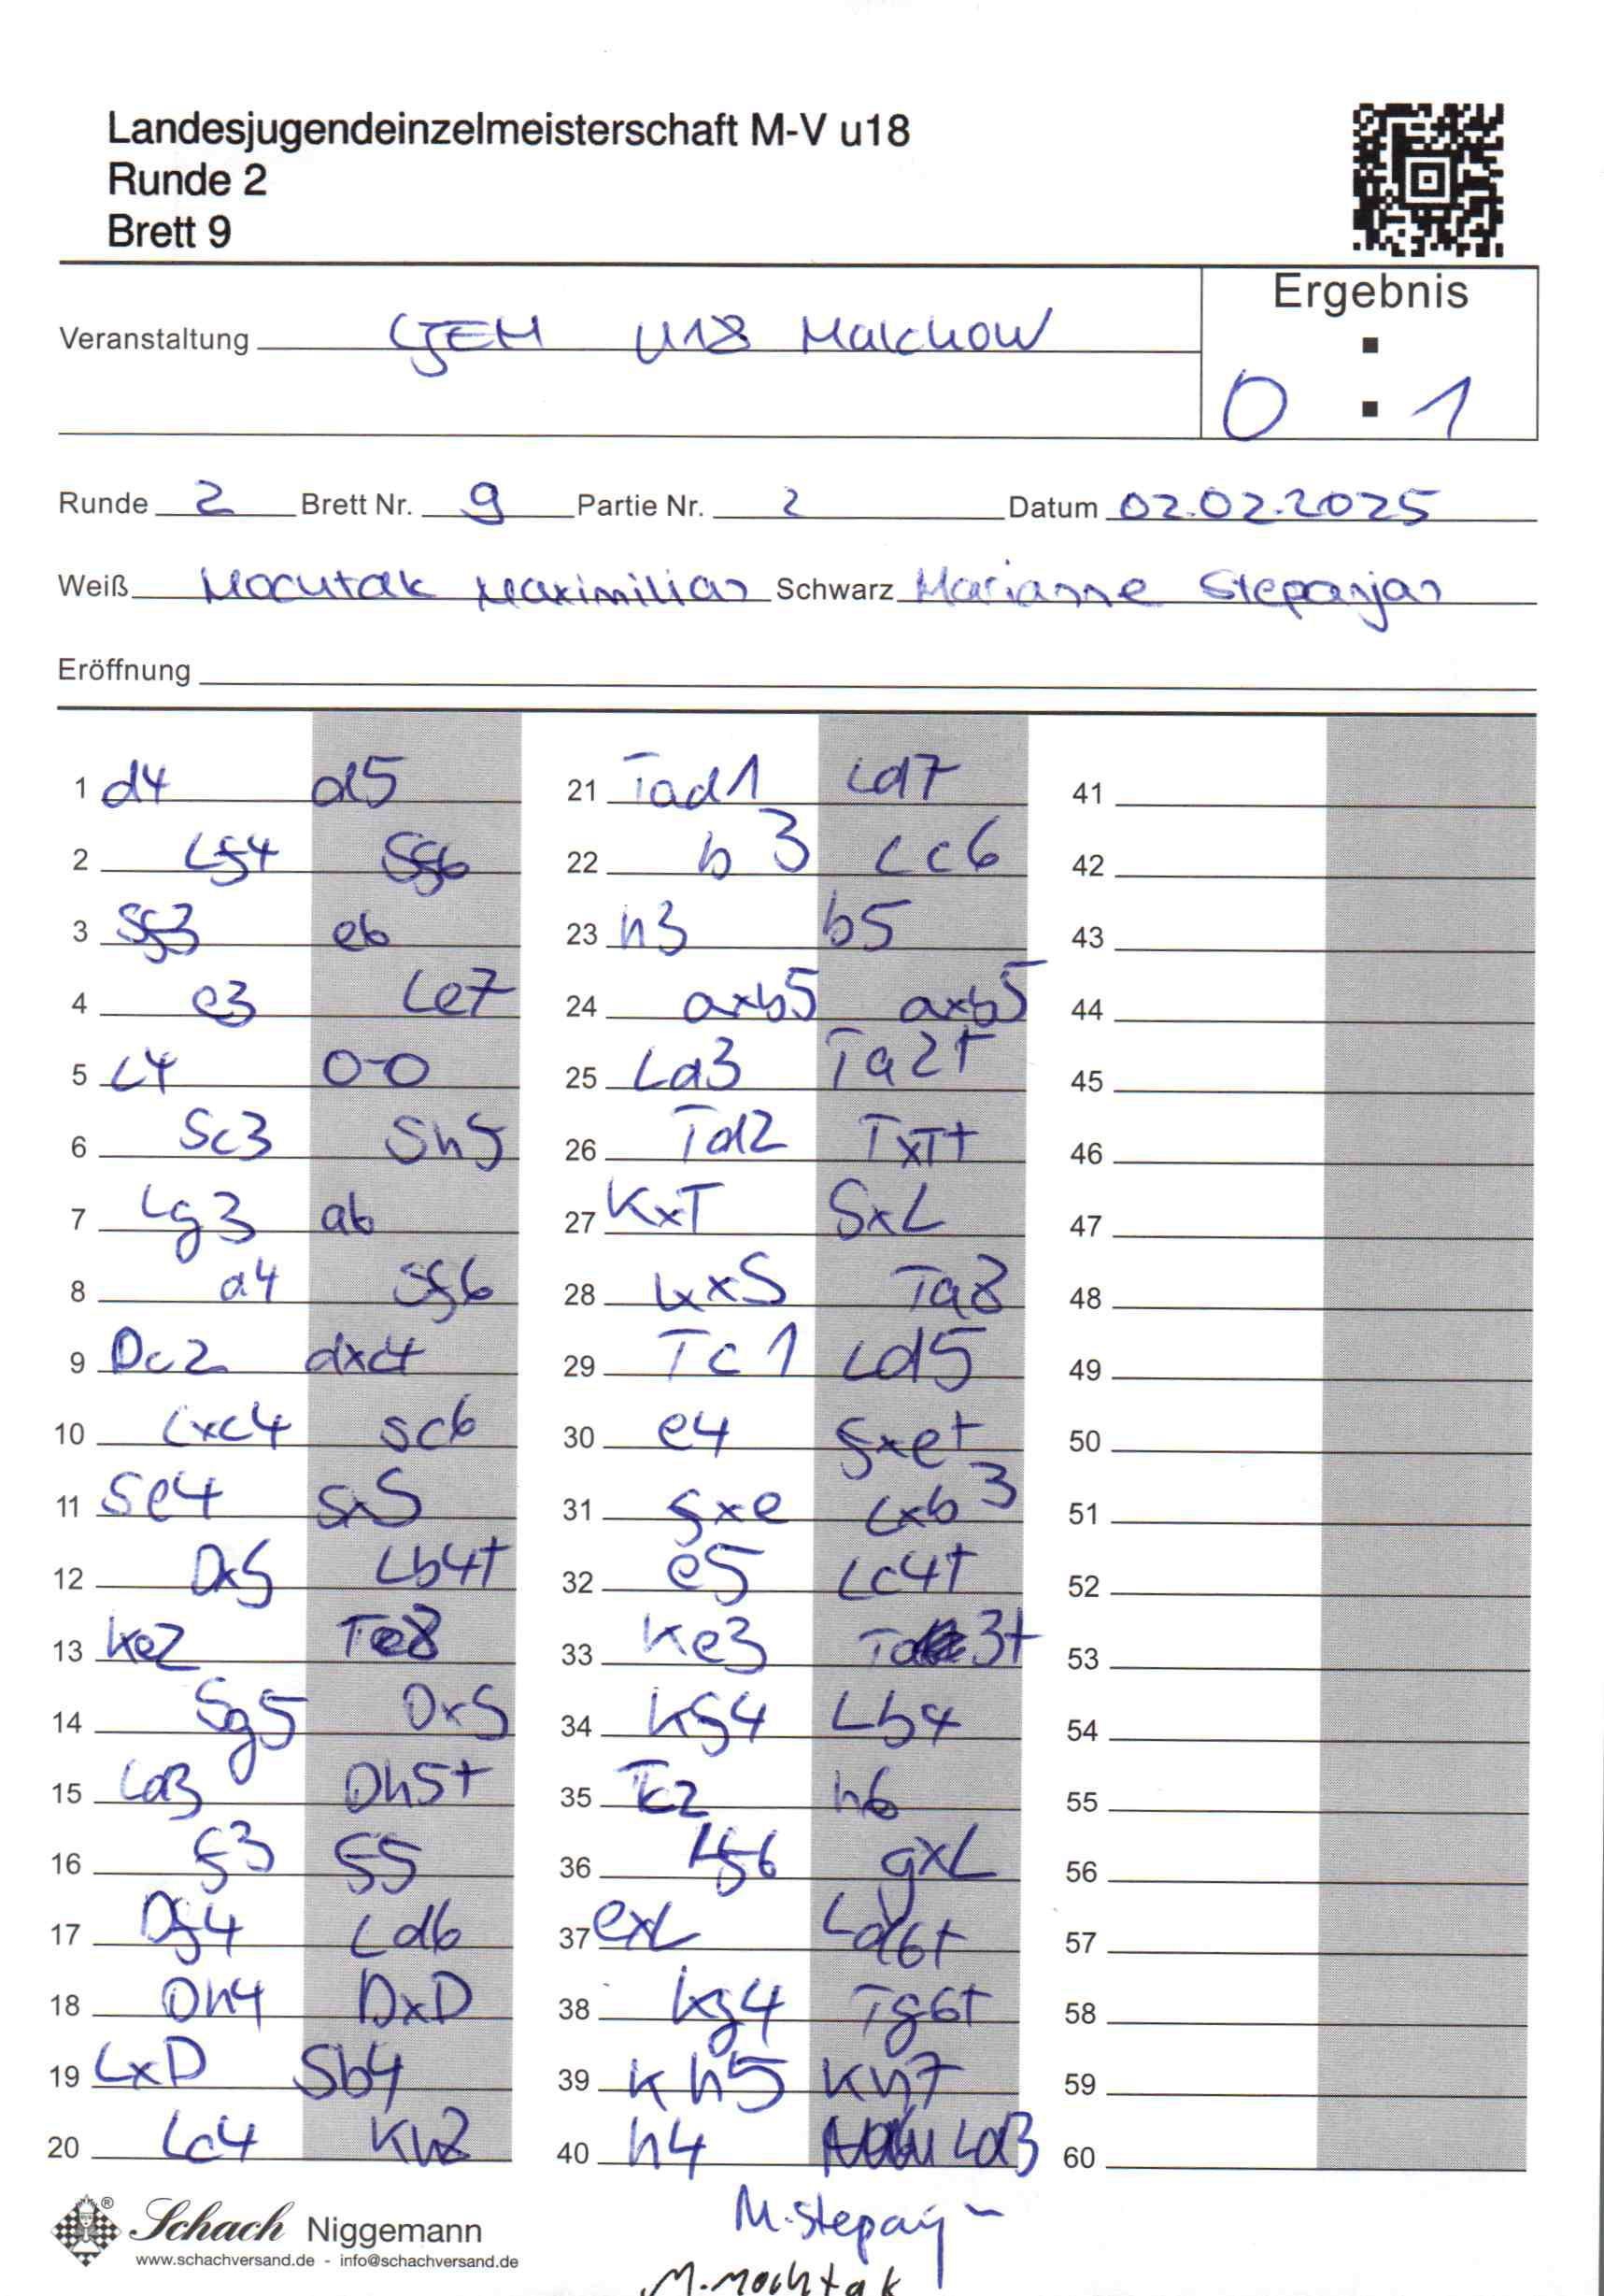 Landesjugendeinzelmeisterschaft M-V u18
Runde 2
Brett 9
Ergebnis
Veranstaltung LJEM U18 Malchow
0 : 1
Runde 2 Brett Nr. 9 Partie Nr. 2 Datum 02.02.2025
Weiß Mochtak Maximilian Schwarz Marianne Stepanjan
Eröffnung
1 d4 d5 21 Tad1 Ld7 41
2 Lf4 Sf6 22 b3 Lc6 42
3 Sf3 e6 23 h3 b5 43
4 e3 Le7 24 axb5 axb5 44
5 c4 0-0 25 Ld3 Ta2+ 45
6 Sc3 Sh5 26 Td2 TxT+ 46
7 Lg3 a6 27 KxT SxL 47
8 a4 Sf6 28 KxS Ta8 48
9 Dc2 dxc4 29 Tc1 Ld5 49
10 Lxc4 Sc6 30 e4 fxe+ 50
11 Se4 SxS 31 fxe Lxb3 51
12 DxS Lb4+ 32 e5 Lc4+ 52
13 Ke2 Te8 33 Ke3 Ta3+ 53
14 Sg5 DxS 34 Kf4 Lb4 54
15 Ld3 Dh5+ 35 Tc2 h6 55
16 f3 f5 36 Lf6 gxL 56
17 Df4 Ld6 37 exL Ld6+ 57
18 Dh4 DxD 38 Kg4 Tg6+ 58
19 LxD Sb4 39 Kh5 Kh7 59
20 Lc4 Kh8 40 h4 Ld3 60
M.Stepanj
Schach Niggemann
www.schachversand.de - info@schachversand.de
M.Mochtak